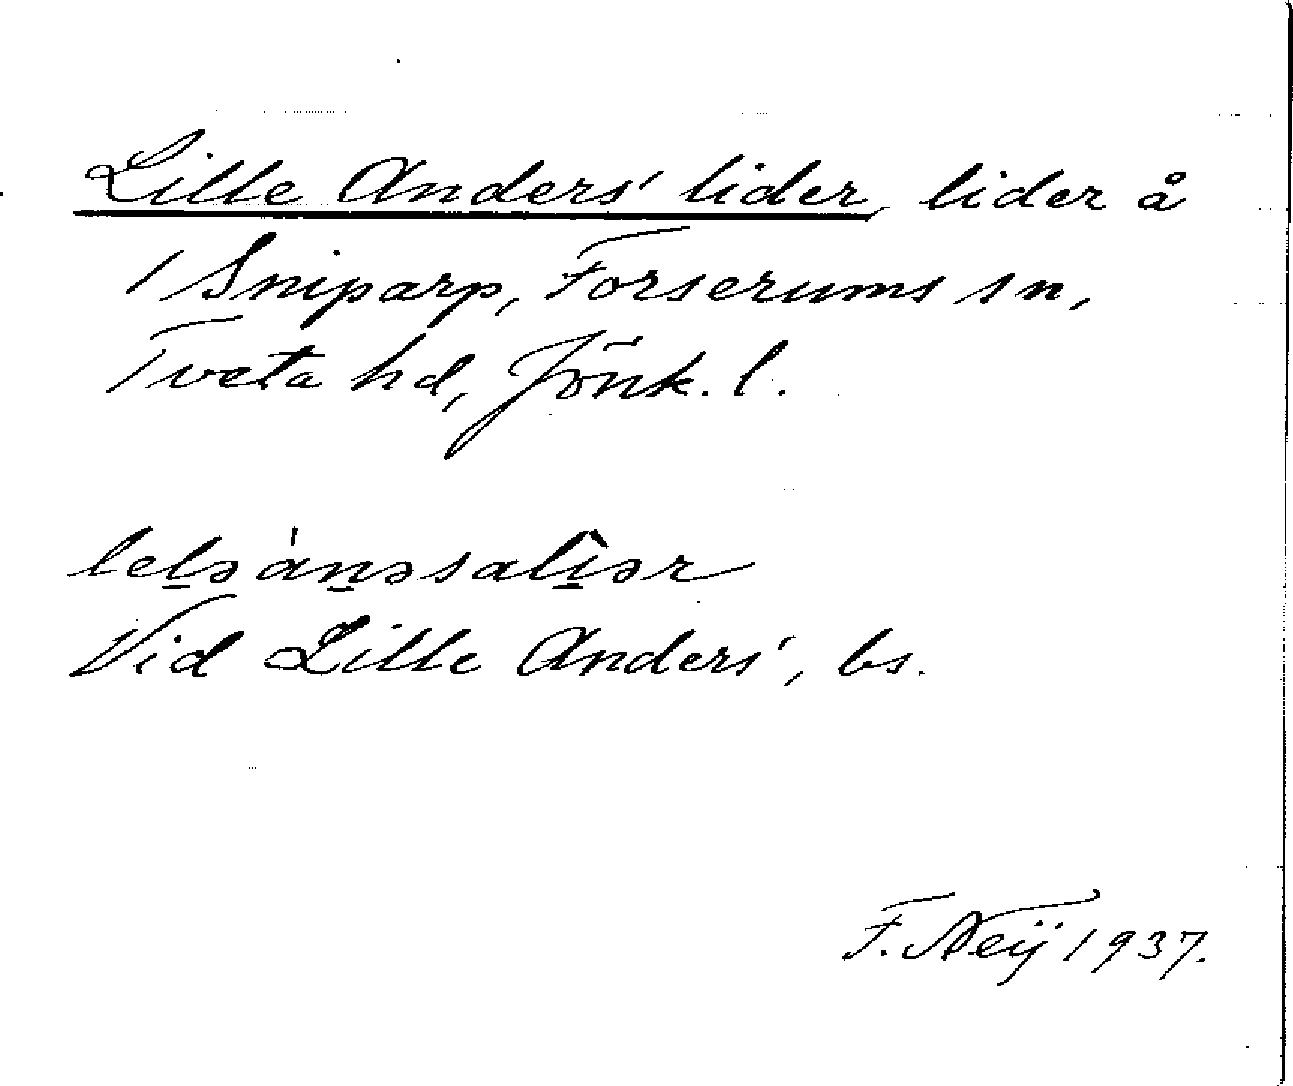 Lille Anders' lider, lider å
1 Sniparp, Forserums sn,
Tveta hd, Jönk. l.
lel̠ə àn̠əsalî̠ər
Vid Lille Anders', bs.
F. Neij 1937.